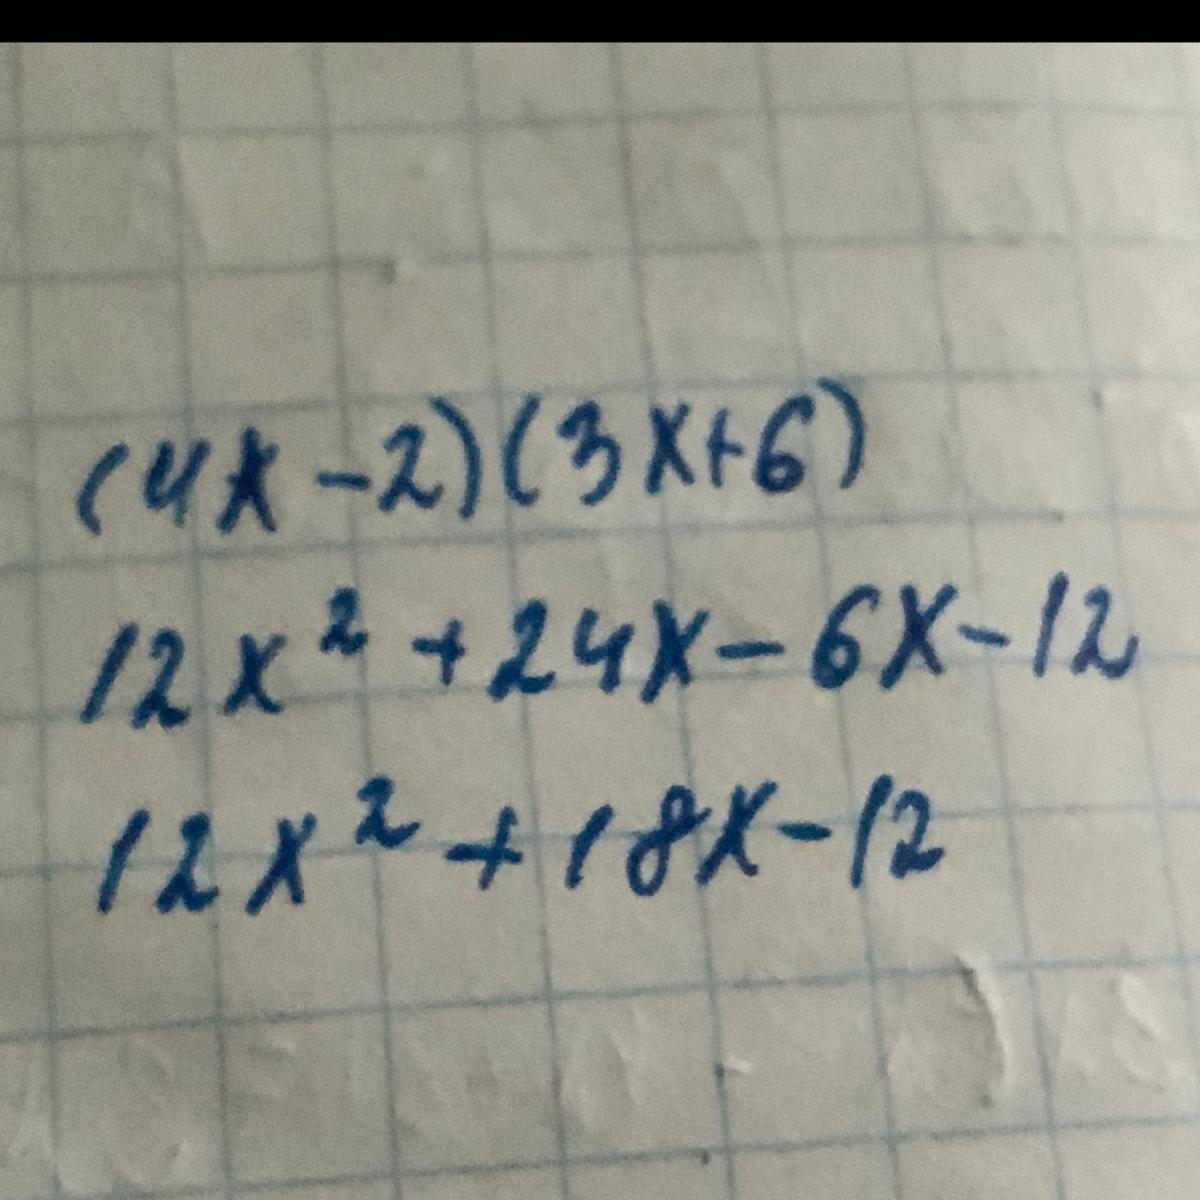 (4x-2)(3x+6)
12x² +24x-6x-12
12x² +18x-12